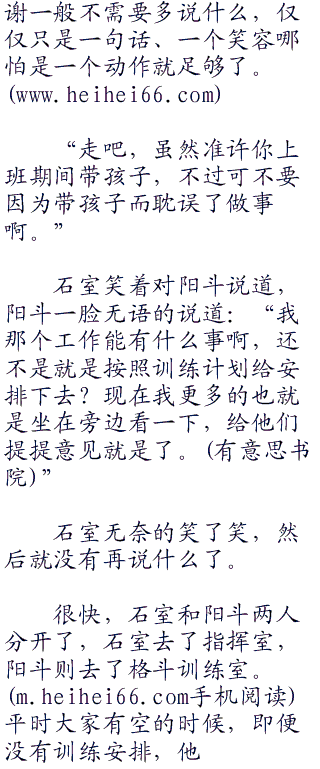 谢一般不需要多说什么，仅
仅只是一句话、一个笑容哪
怕是一个动作就足够了。
(www.heihei66.com)
“走吧，虽然准许你上
班期间带孩子，不过可不要
因为带孩子而耽误了做事
啊。”
石室笑着对阳斗说道，
阳斗一脸无语的说道：“我
那个工作能有什么事啊，还
不是就是按照训练计划给安
排下去？现在我更多的也就
是坐在旁边看一下，给他们
提提意见就是了。(有意思书
院)”
石室无奈的笑了笑，然
后就没有再说什么了。
很快，石室和阳斗两人
分开了，石室去了指挥室，
阳斗则去了格斗训练室。
(m.heihei66.com手机阅读)
平时大家有空的时候，即便
没有训练安排，他